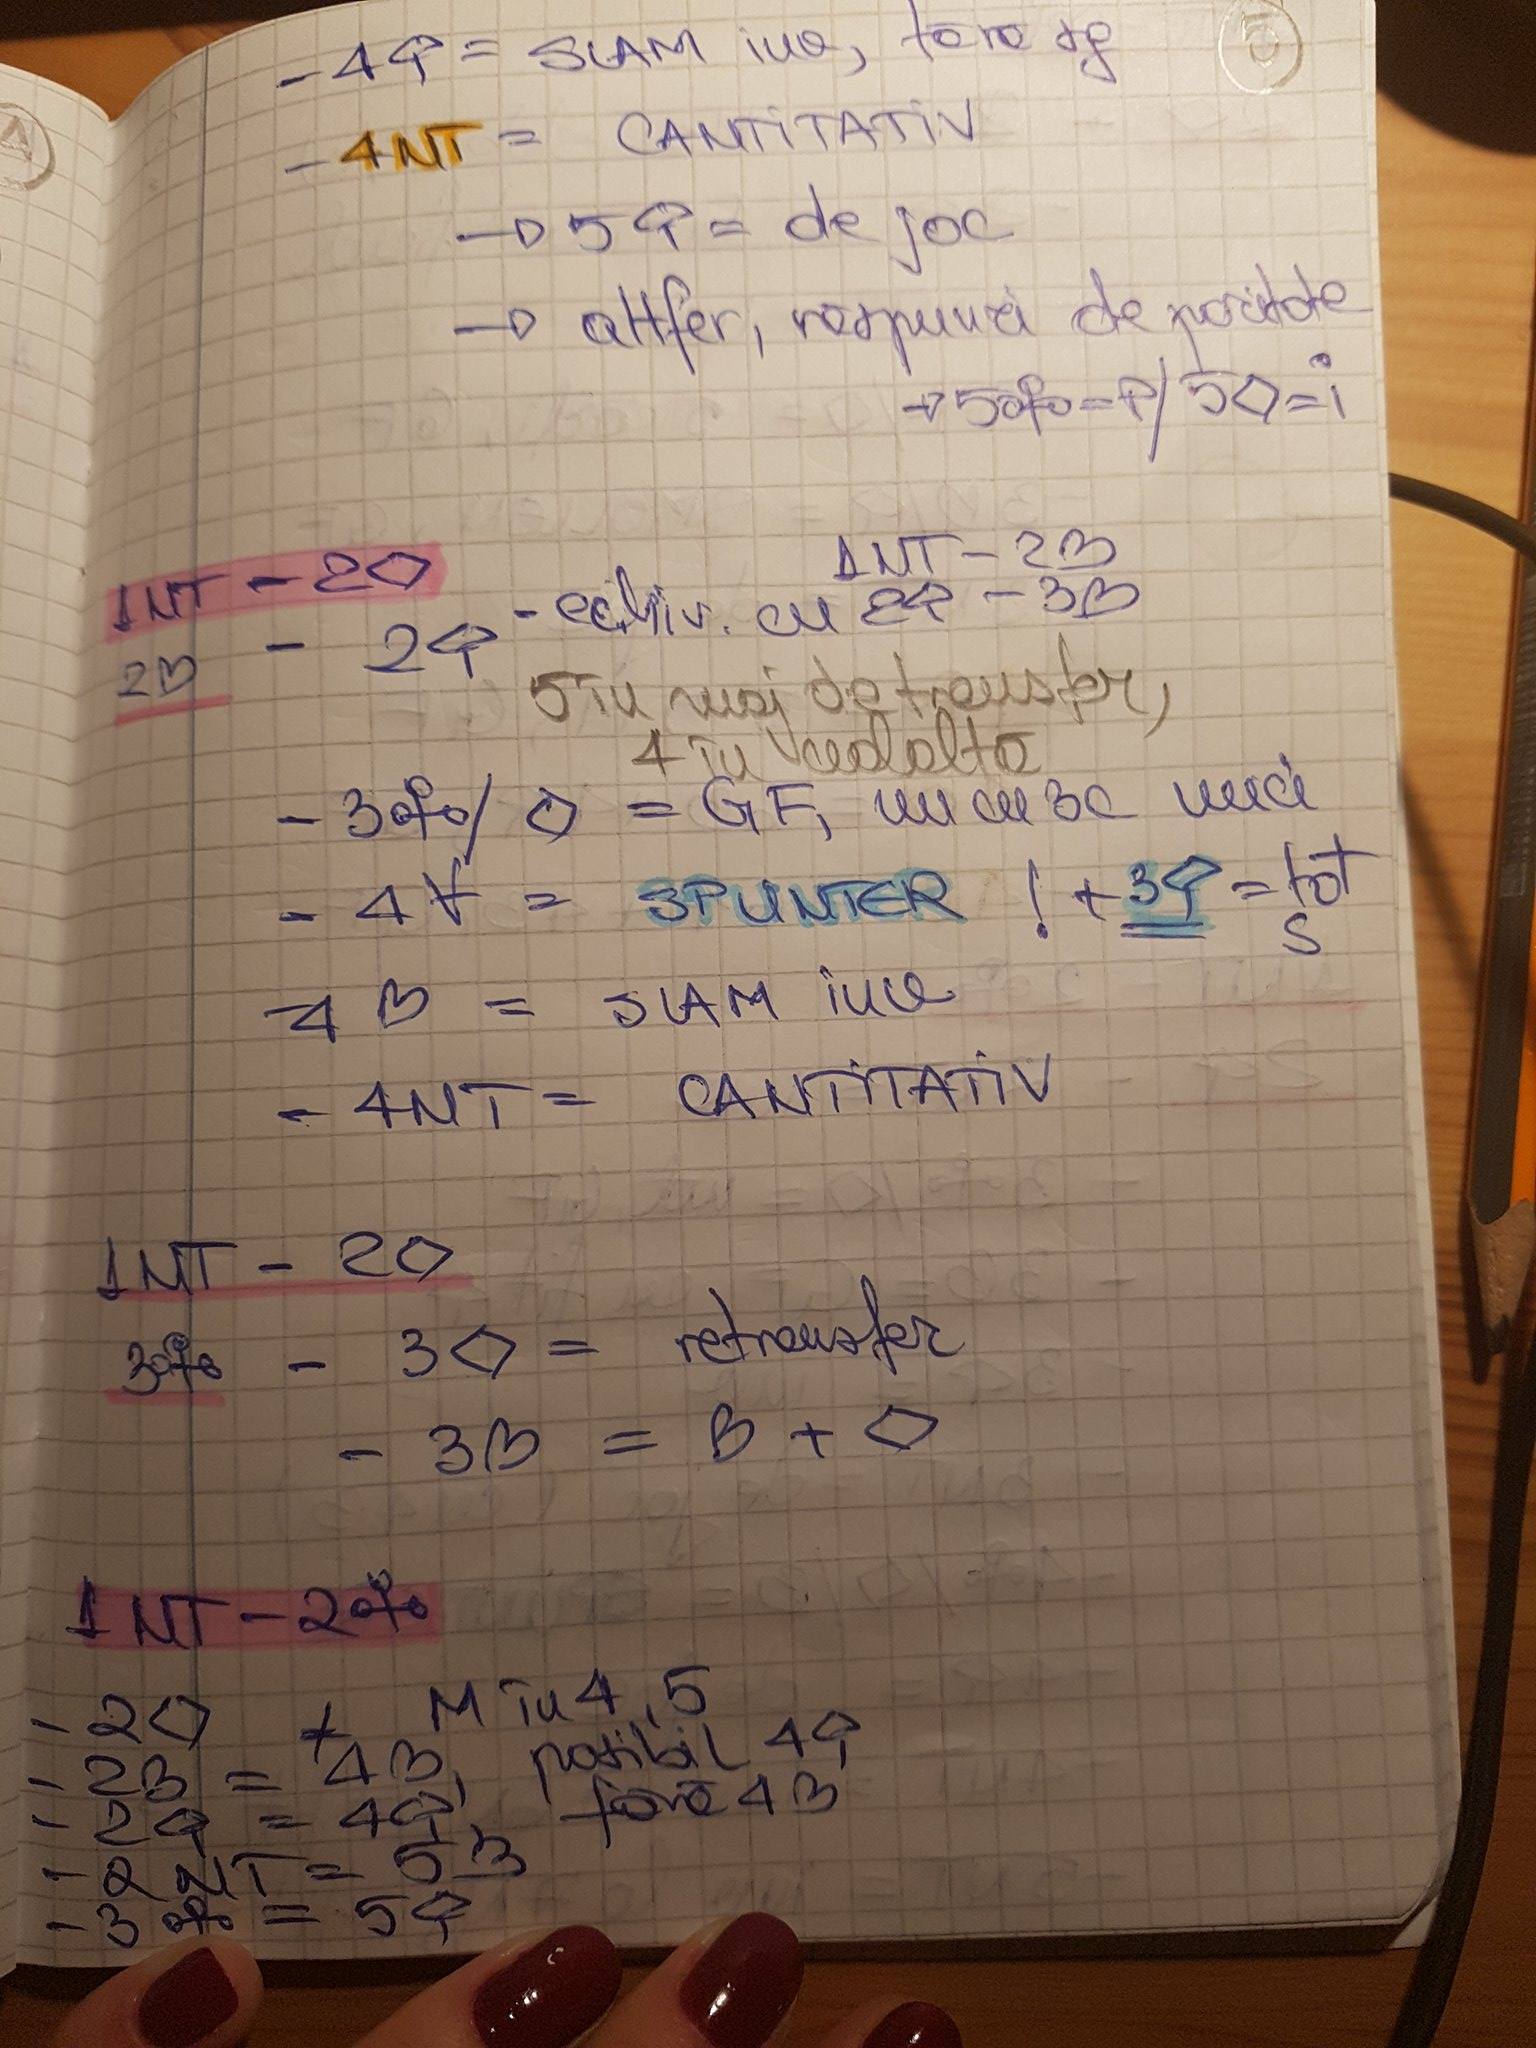 5
- 4♠ = SLAM inv, fără sg
- 4NT = CANTITATIV
→ 5♠ = de joc
→ altfel, răspunsi de paritate
→ 5♣ = P/ 5♢ = i
4
1NT - 2♢
2♡ - 2♠ - echiv. cu 1NT - 2♡
2♠ - 3♡
5 în maj de transfer,
4 în cealaltă
- 3♣/♢ = GF, numesc minci
- 4 = SPLINTER ! + 3♠ = tot S
- 4♡ = SLAM inv
- 4NT = CANTITATIV
1NT - 2♢
3♣ - 3♢ = retransfer
- 3♡ = ♡ + ♢
1NT - 2♣
- 2♢ ≠ M în 4, 5
- 2♡ = 4♡, posibil 4♠
- 2♠ = 4♠, fără 4♡
- 2NT = 5♡
- 3♣ = 5♠